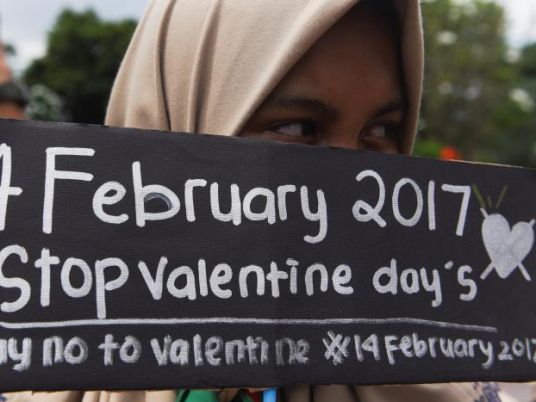 4 February 2017
Stop Valentine day's
ay no to valentine #14 February 2017